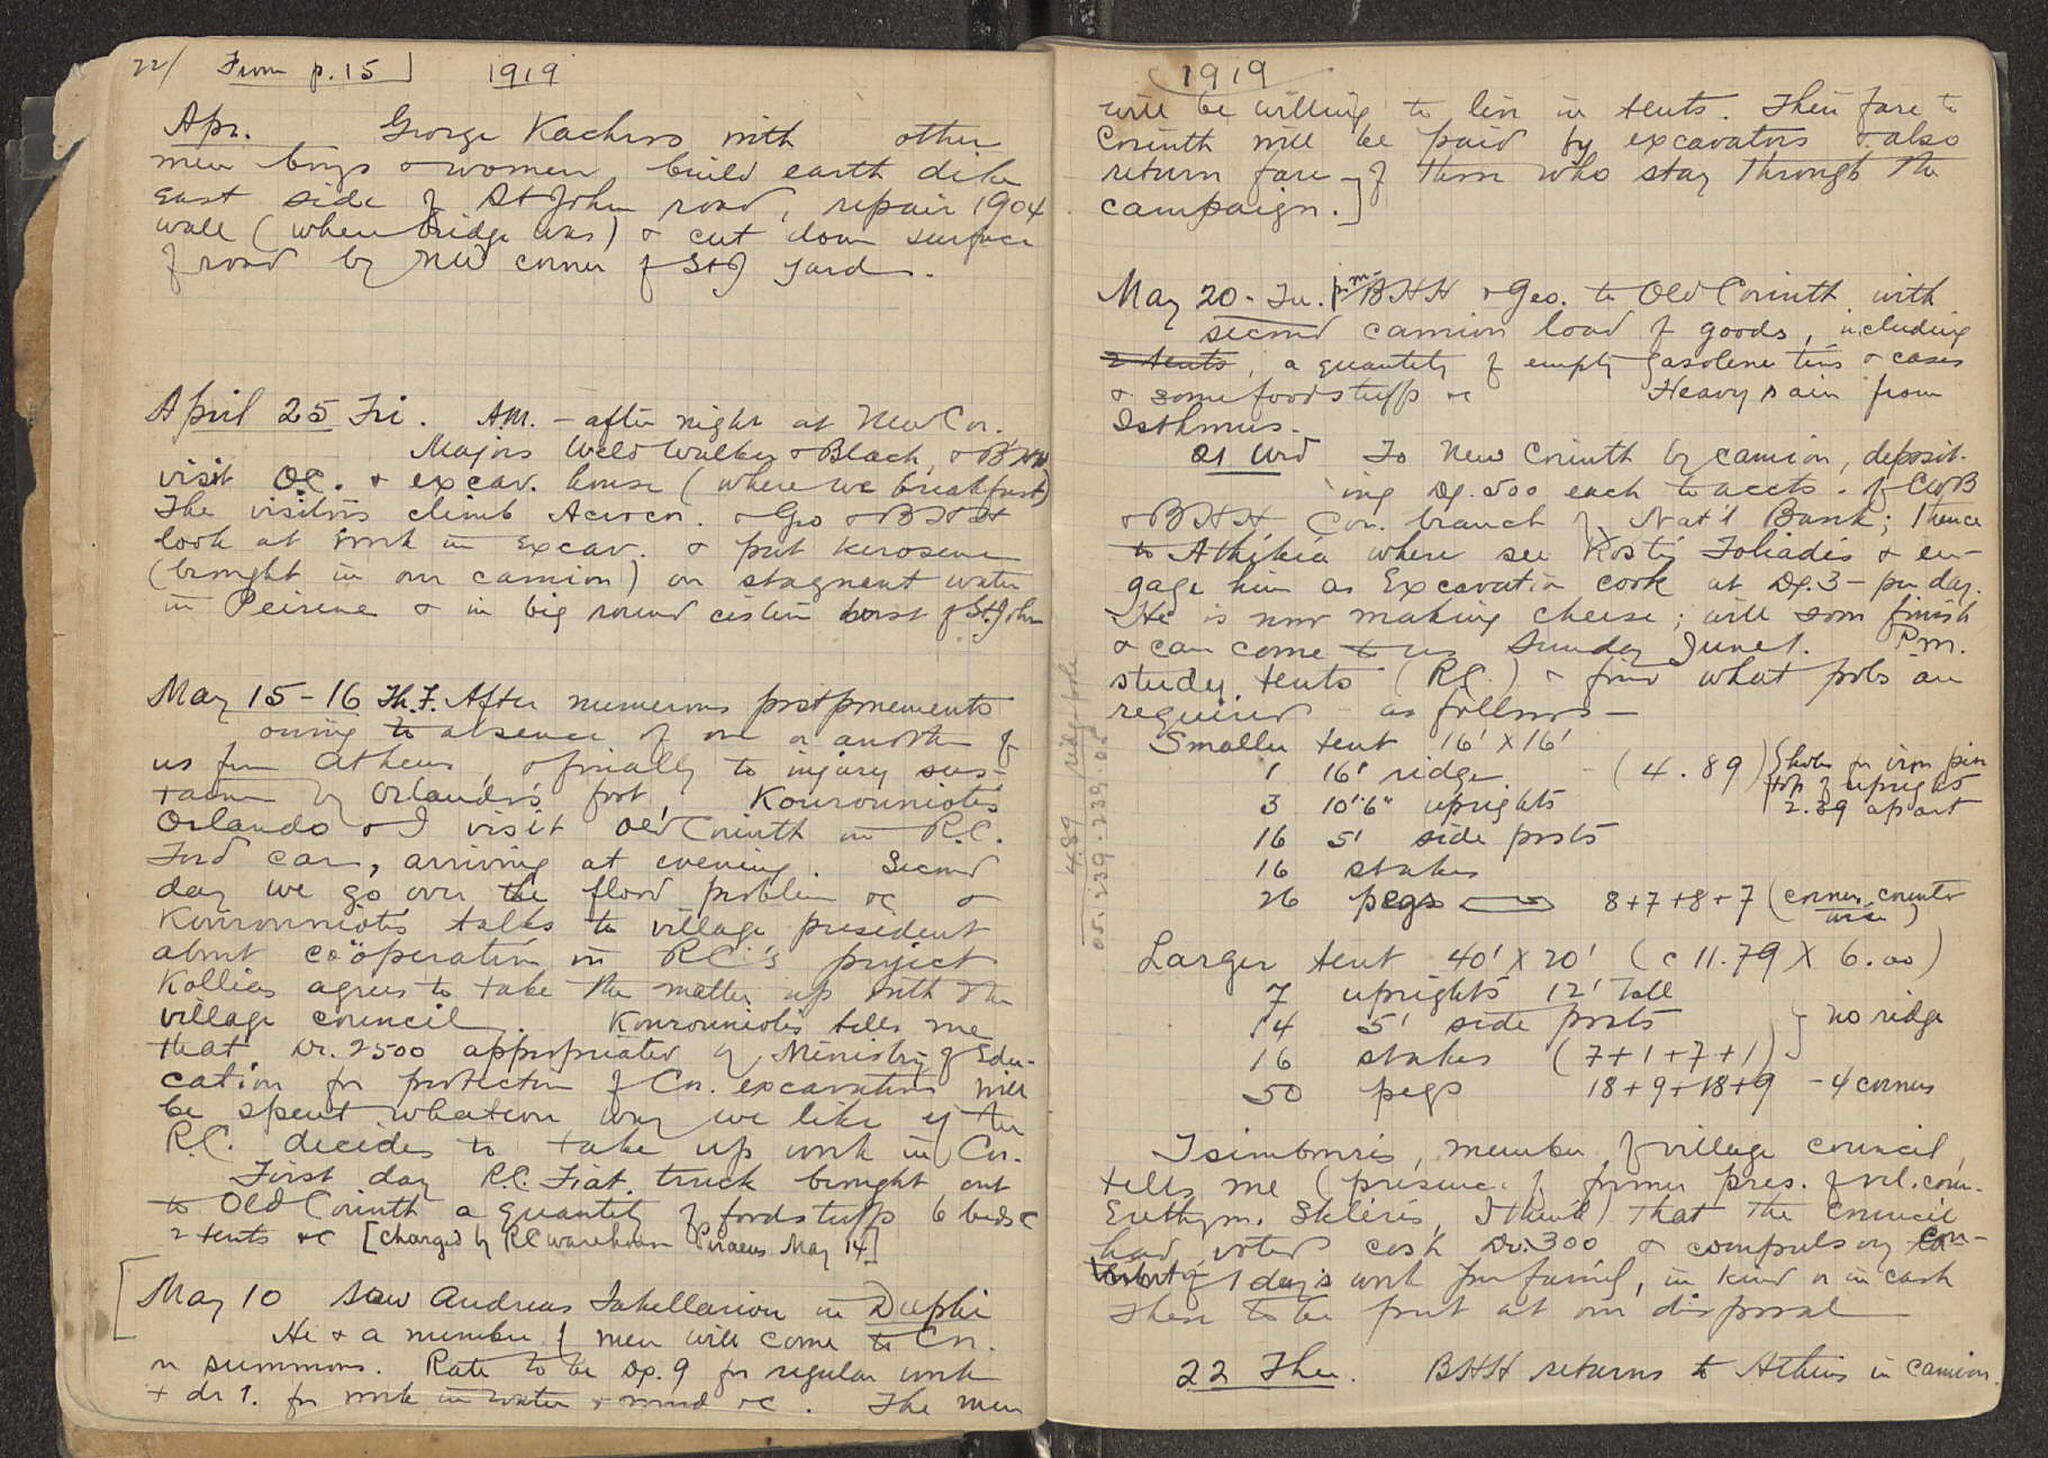 22/ From p. 15] 1919
Apr. George Kachros with other
men boys & women build earth dike
East side of St John road, repair 1904
wall (where bridge was) & cut down surface
of road by NW corner of St J yard.
April 25 Fri. A.M. - after night at New Cor.
Majors Weld Walker & Black, & BHH
visit OC. & excav. house (where we breakfast)
The visitors climb Acrocor. & Geo & BHH
look at work in Excav. & put kerosene
(brought in our camion) on stagnent water
in Peirene & in big round cistern west of St. John
May 15-16 Th. F. After numerous postponements
owing to absence of one or another of
us from Athens, & finally to injury sus-
tained by Orlando's foot, Kourouniotis
Orlando & I visit Old Corinth in R.C.
Ford car, arriving at evening. Second
day we go over the flood problem &c &
Kourouniotis talks to village president
about coöperation in RC's project
Kollias agrees to take the matter up with the
village council. Kourouniotis tells me
that Dr. 2500 appropriated by Ministry of Edu-
cation for protection of Cor. excavations will
be spent whatever way we like if the
R.C. decides to take up work in Cor.
First day R.C. Fiat truck brought out
to Old Corinth a quantity of foodstuffs 6 beds
2 tents &c [charged by RC warehouse Piraeus May 14]
[May 10 Saw Andreas Takellariou in Delphi
He & a number of men will come to Cor.
on summons. Rate to be Dr. 9 for regular work
+ dr 1. for work in water & mud &c. The men
1919
will be willing to live in tents. Their fare to
Corinth will be paid by excavators & also
return fare of those who stay through the
campaign.]
May 20 - Tu. pm BHH & Geo. to Old Corinth with
second camion load of goods, including
2 tents, a quantity of empty gasolene tins & cases
& some foodstuffs &c Heavy rain from
Isthmus.
21 Wed To New Corinth by camion, deposit-
ing Dr. 500 each to accts. of CWB
& BHH Cor. branch of Nat'l Bank; thence
to Athikia where see Kosti Toliadis & en-
gage him as Excavation cook at Dr. 3 - per day.
He is now making cheese; will soon finish
& can come to us Sunday June 1. P.m.
study tents (RC.) & find what pols are
required - as follows -
Smaller tent 16' X 16'
1 16' ridge (4.89) {holes for iron pin
3 10'6" uprights top of uprights
2.39 apart
16 5' side posts
16 stakes
26 pegs 8+7+8+7 (corners counted
twice)
4.89 ridge pole
05.239.239.05
Larger tent 40' X 20' (c 11.79 X 6.00)
7 uprights 12' tall
14 5' side posts } no ridge
16 stakes (7+1+7+1)
50 pegs 18+9+18+9 - 4 corners
Tsimbouris, member of village council,
tells me (presence of former pres. of vil. coun.
Euthym. Skliris, I think) that the Council
had voted cash Dr. 300 & compulsory con-
of 1 day's work per family, in kind or in cash
these to be put at our disposal
22 Thu. BHH returns to Athens in camion.